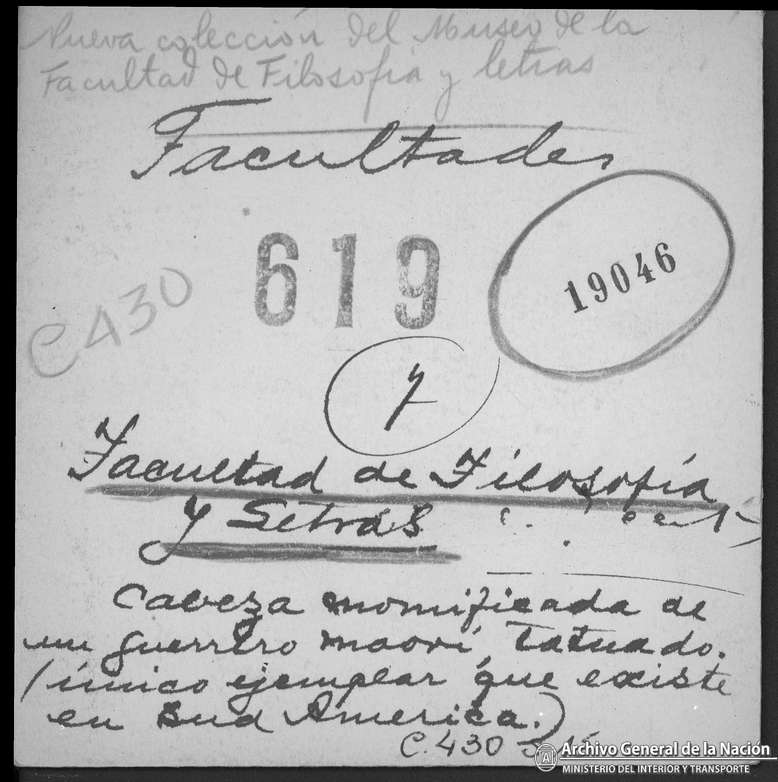 Nueva colección del Museo de la
Facultad de Filosofía y letras
Facultades
619
19046
C430
7
Facultad de Filosofía
y Letras
Cabeza momificada de
un guerrero maorí tatuado.
(único ejemplar que existe
en Sud America.)
C.430
Archivo General de la Nación
MINISTERIO DEL INTERIOR Y TRANSPORTE